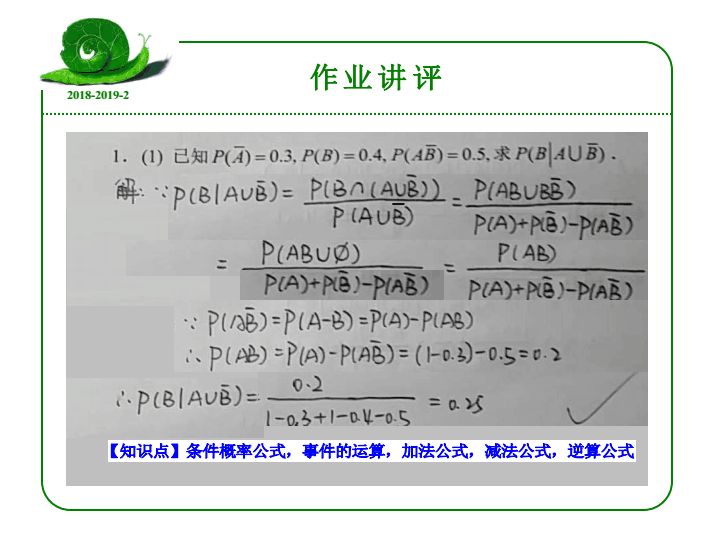 作业讲评
2018-2019-2
1. (1) 已知 P(A̅) = 0.3, P(B) = 0.4, P(AB̅) = 0.5, 求 P(B|A∪B̅).
解: ∵ P(B|A∪B̅) = P(B∩(A∪B̅)) / P(A∪B̅) = P(AB∪BB̅) / P(A)+P(B̅)-P(AB̅)
= P(AB∪Ø) / P(A)+P(B̅)-P(AB̅) = P(AB) / P(A)+P(B̅)-P(AB̅)
∵ P(AB̅) = P(A-B) = P(A)-P(AB)
∴ P(AB) = P(A)-P(AB̅) = (1-0.3)-0.5 = 0.2
∴ P(B|A∪B̅) = 0.2 / 1-0.3+1-0.4-0.5 = 0.25
【知识点】条件概率公式，事件的运算，加法公式，减法公式，逆算公式